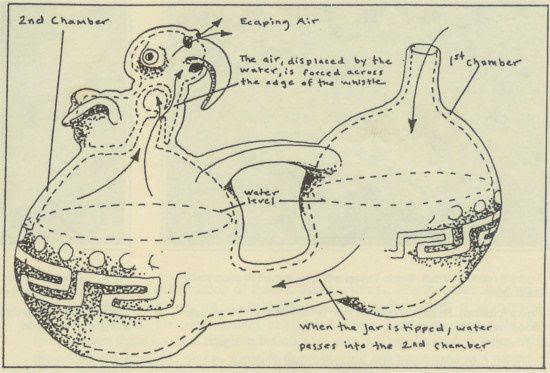 2nd Chamber
Ecaping Air
The air, displaced by the
water, is forced across
the edge of the whistle
1st Chamber
Water
level
When the jar is tipped, water
passes into the 2nd chamber